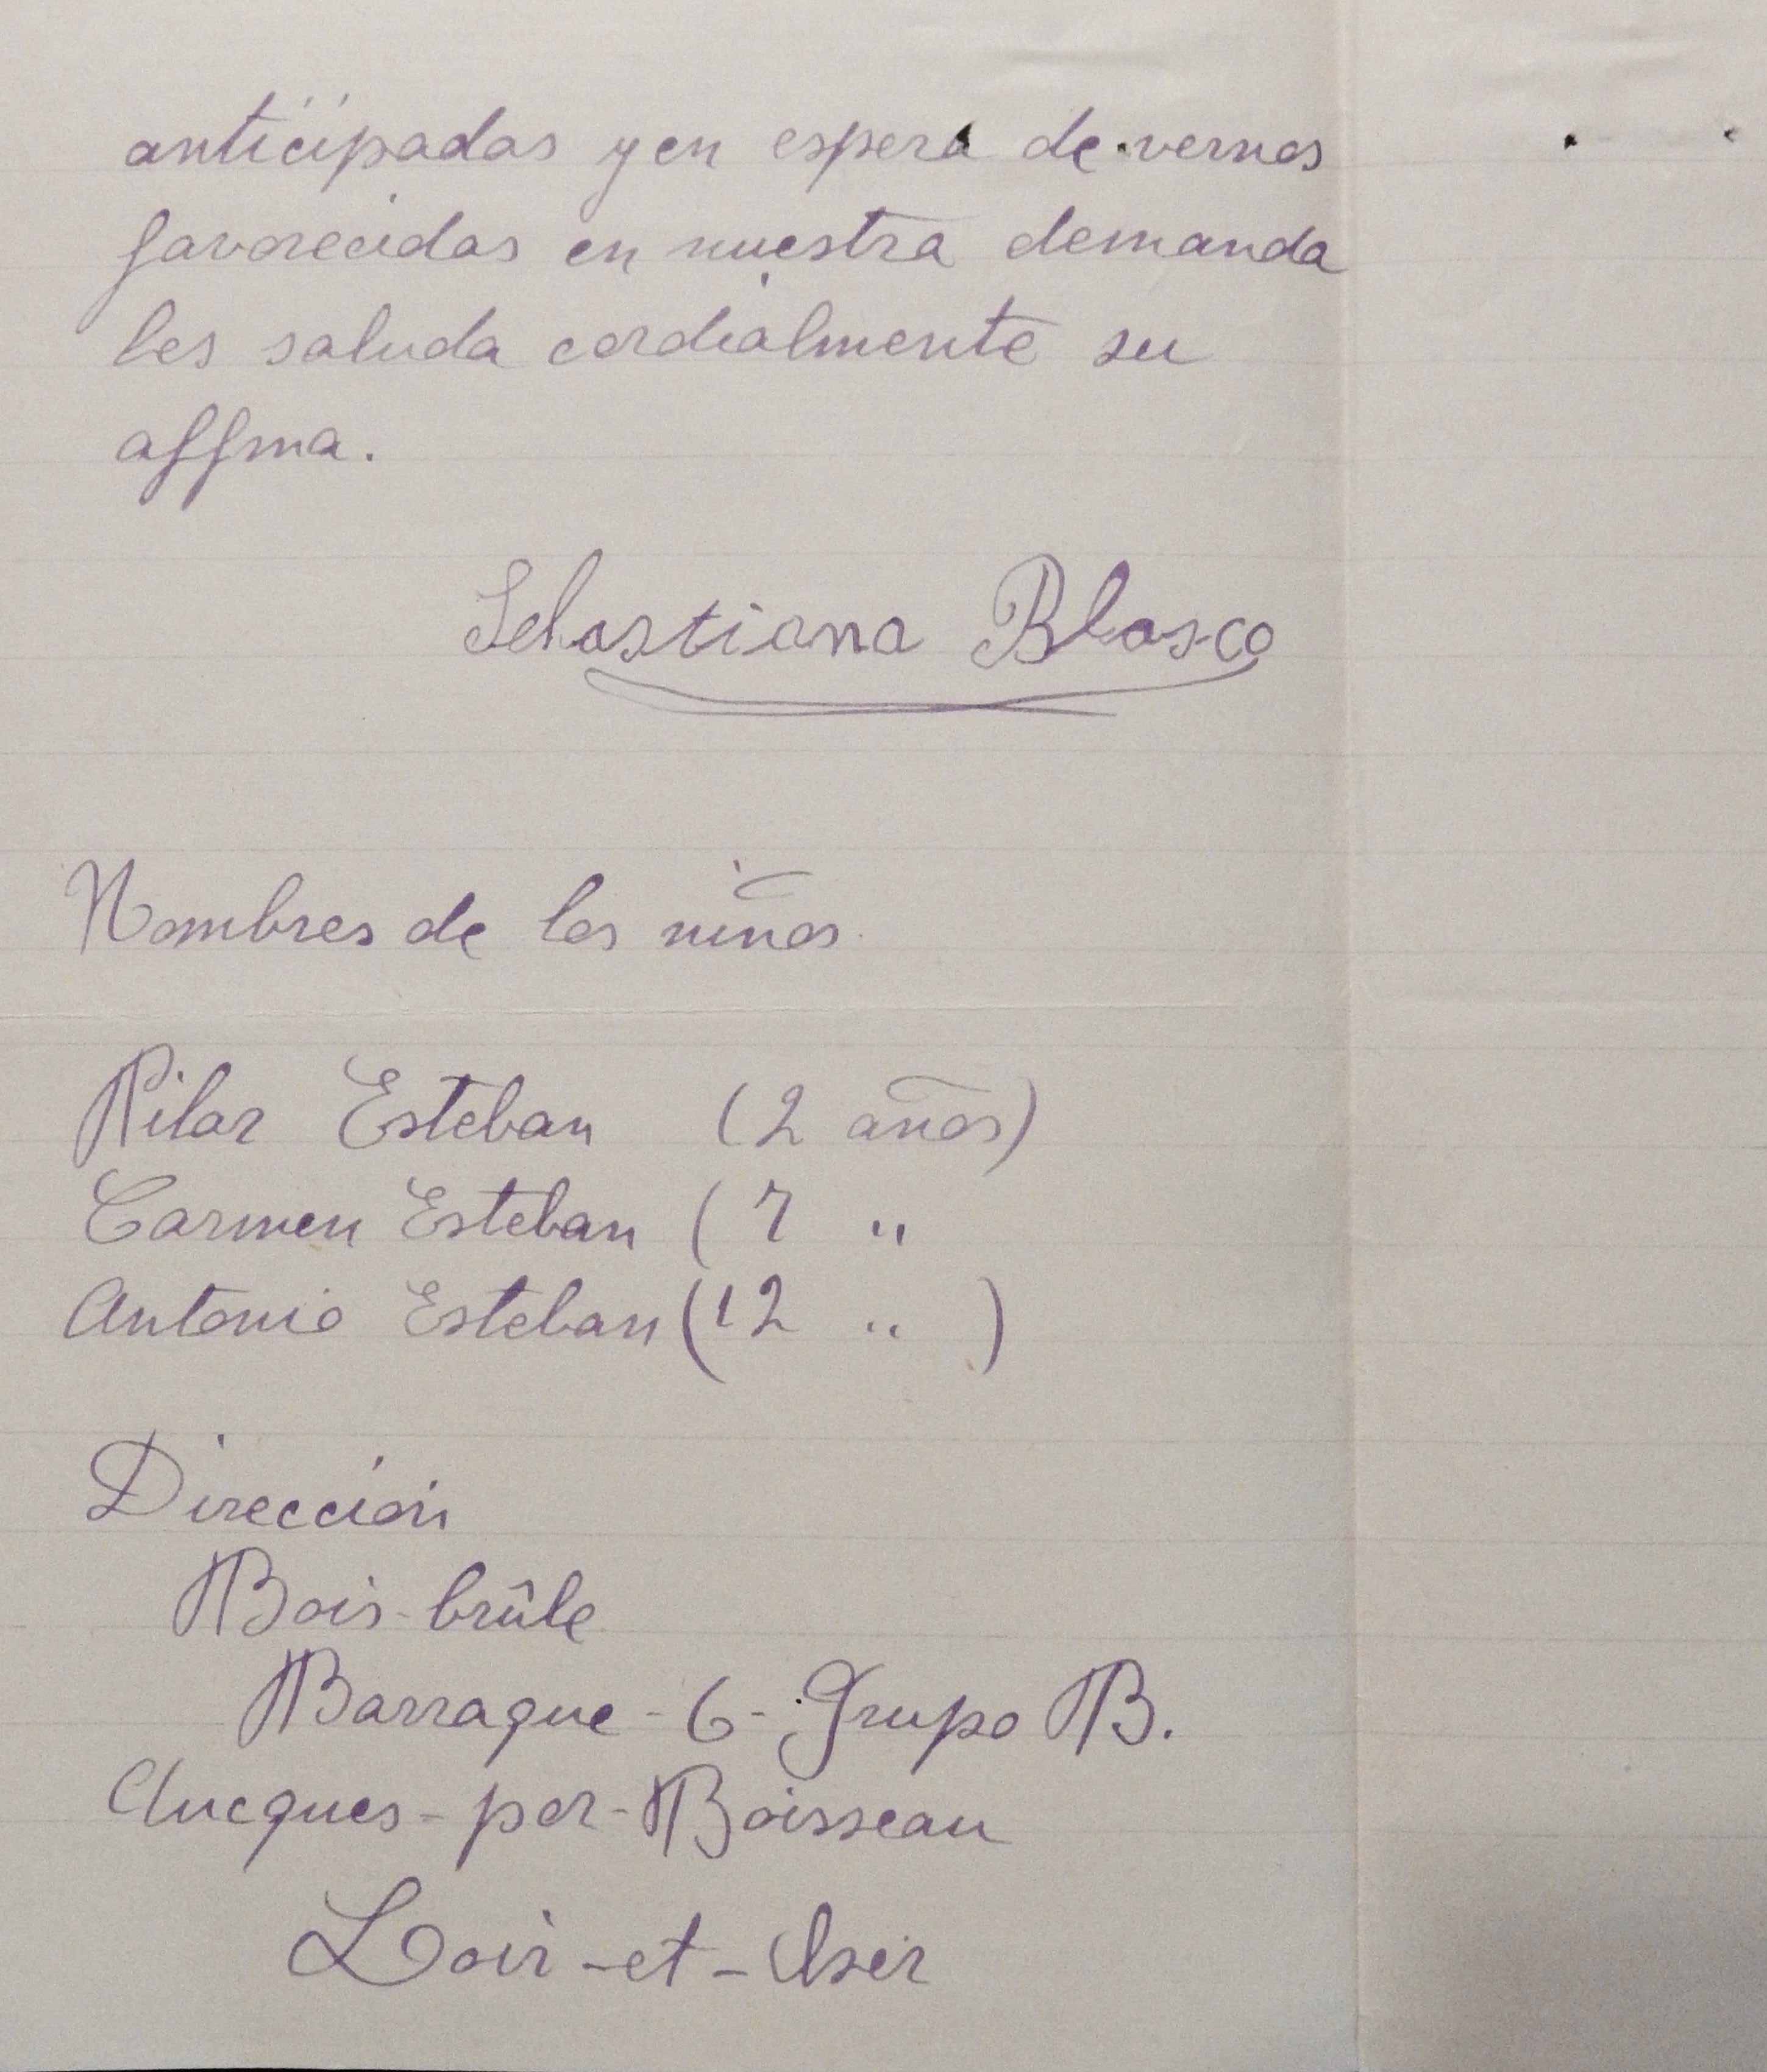 anticipadas y en espera de vernos
favorecidas en nuestra demanda
les saluda cordialmente su
affma.
Sebastiana Blasco
Nombres de los niños
Pilar Esteban (2 años)
Carmen Esteban (7 "
Antonio Esteban (12 " )
Dirección
Bois-brûle
Barraque - 6 - Grupo B.
por-Boisseau
Loir-et-